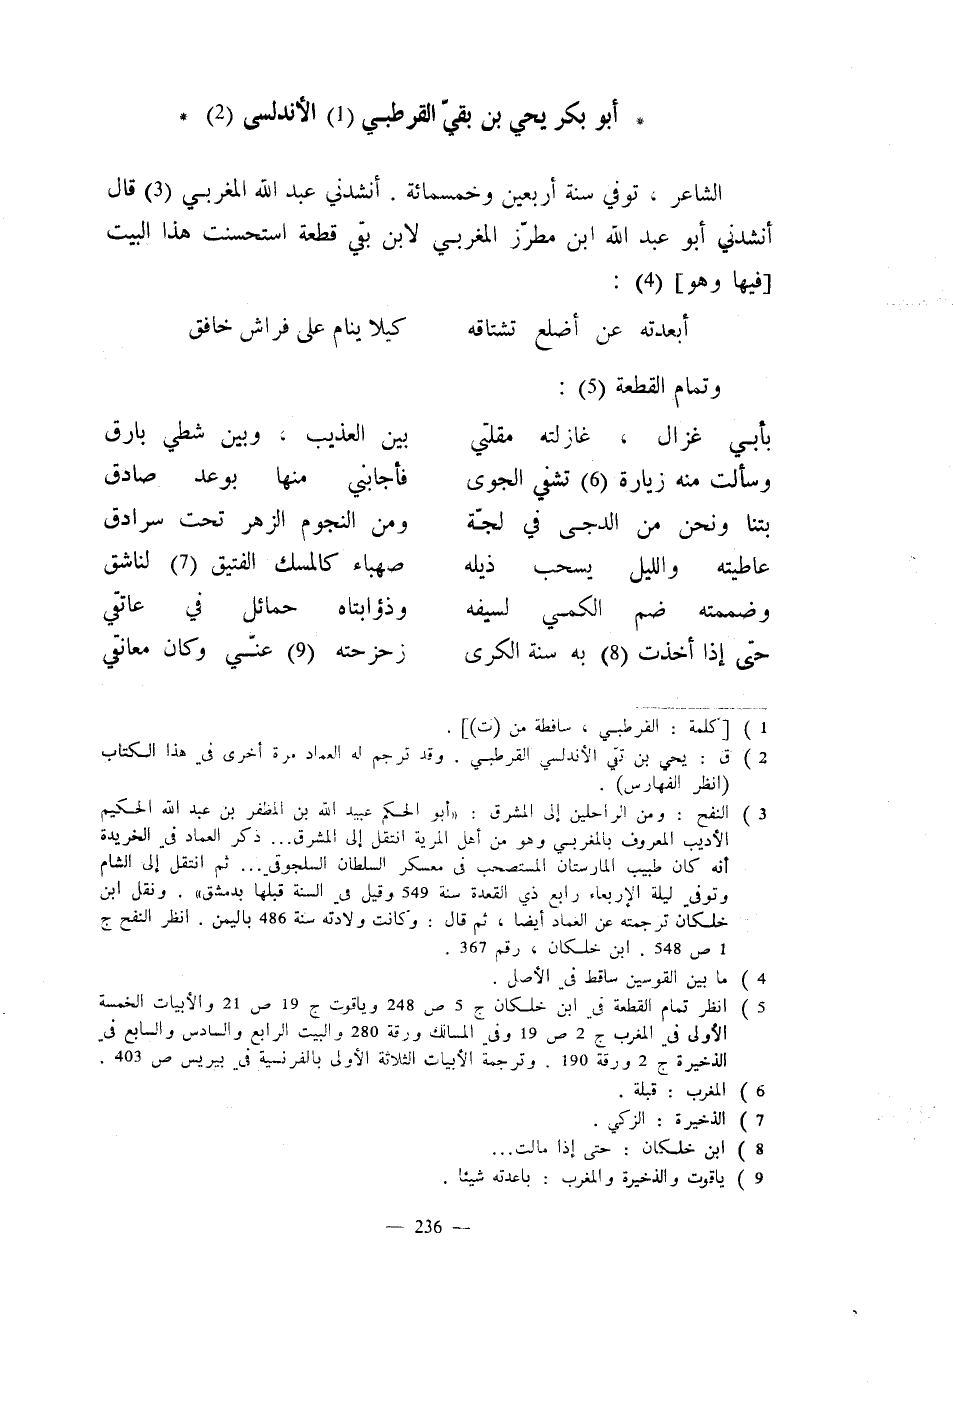 * أبو بكر يحي بن بقيّ القرطبي (1) الأندلسى (2) *
الشاعر ، توفي سنة أربعين وخمسمائة . أنشدني عبد الله المغربي (3) قال
أنشدني أبو عبد الله ابن مطرّز المغربي لابن بقي قطعة استحسنت هذا البيت
[فيها وهو] (4) :
أبعدته عن أضلع تشتاقه كيلا ينام على فراش خافق
وتمام القطعة (5) :
بأبي غزال ، غازلته مقلتي بين العذيب ، وبين شطي بارق
وسألت منه زيارة (6) تشفي الجوى فأجابني منها بوعد صادق
بتنا ونحن من الدجى في لجّة ومن النجوم الزهر تحت سرادق
عاطيته والليل يسحب ذيله صهباء كالمسك الفتيق (7) لناشق
وضممته ضم الكمي لسيفه وذؤابتاه حمائل في عاتقي
حتّى إذا أخذت (8) به سنة الكرى زحزحته (9) عنّي وكان معانقي
1 ) [كلمة : القرطبي ، ساقطة من (ت)] .
2 ) ق : يحي بن تقي الأندلسي القرطبي . وقد ترجم له العماد مرة أخرى في هذا الكتاب
(انظر الفهارس) .
3 ) النفح : ومن الراحلين إلى المشرق : «أبو الحكم عبيد الله بن المظفر بن عبد الله الحكيم
الأديب المعروف بالمغربي وهو من أهل المرية انتقل إلى المشرق... ذكر العماد في الخريدة
أنه كان طبيب المارستان المستصحب في معسكر السلطان السلجوقي... ثم انتقل إلى الشام
وتوفي ليلة الإربعاء رابع ذي القعدة سنة 549 وقيل في السنة قبلها بدمشق» . ونقل ابن
خلكان ترجمته عن العماد أيضا ، ثم قال : وكانت ولادته سنة 486 باليمن . انظر النفح ج
1 ص 548 . ابن خلكان ، رقم 367 .
4 ) ما بين القوسين ساقط في الأصل .
5 ) انظر تمام القطعة في ابن خلكان ج 5 ص 248 وياقوت ج 19 ص 21 والأبيات الخمسة
الأولى في المغرب ج 2 ص 19 وفي المسالك ورقة 280 والبيت الرابع والسادس والسابع في
الذخيرة ج 2 ورقة 190 . وترجمة الأبيات الثلاثة الأولى بالفرنسية في بيريس ص 403 .
6 ) المغرب : قبلة .
7 ) الذخيرة : الزكي .
8 ) ابن خلكان : حتى إذا مالت...
9 ) ياقوت والذخيرة والمغرب : باعدته شيئا .
— 236 —